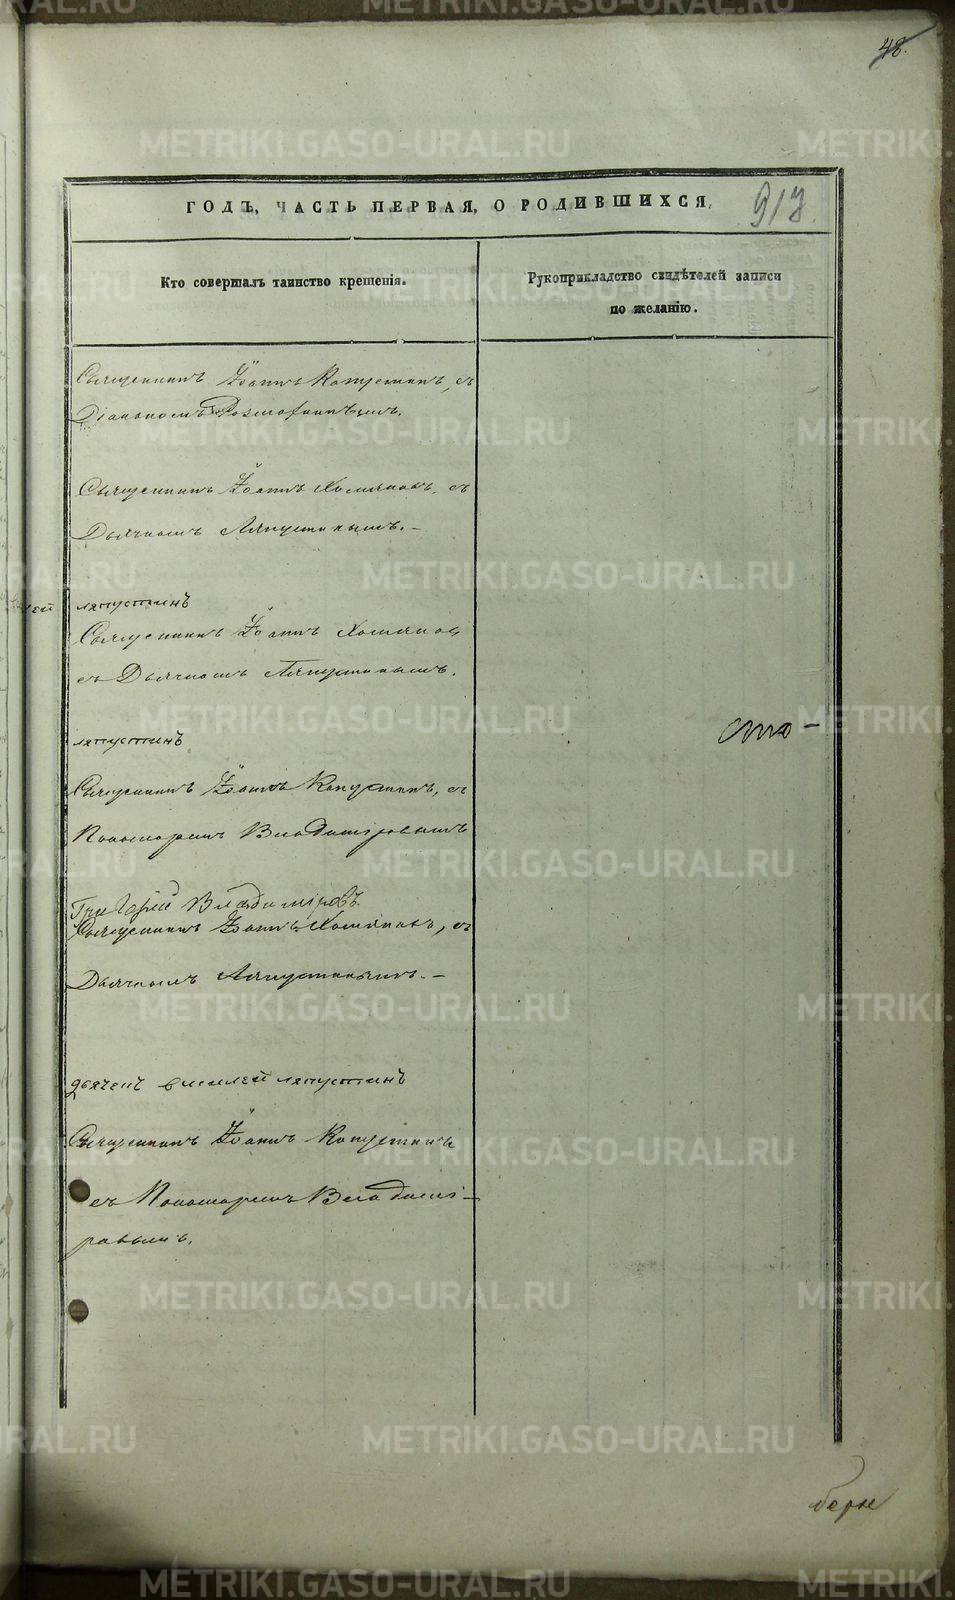 48.
913.
ГОДЪ, ЧАСТЬ ПЕРВАЯ, О РОДИВШИХСЯ.
Кто совершалъ таинство крещенія.
Рукоприкладство свидѣтелей записи
по желанію.
Священникъ Іоаннъ Капустинъ, съ
Діакономъ
Священникъ Іоаннъ Хомяковъ, съ
Дьячкомъ Ляпустинымъ. —
ляпустинъ
Священникъ Іоаннъ Хомяковъ
съ Дьячкомъ Ляпустинымъ.
ляпустинъ
Священникъ Іоаннъ Капустинъ, съ
Пономаремъ Владиміровымъ
Григорій Владиміровъ
Священникъ Іоаннъ Хомяковъ, съ
Дьячкомъ Ляпустинымъ. —
дьячекъ василей ляпустинъ
Священникъ Іоаннъ Капустинъ
съ Пономаремъ Владимі-
ровымъ.
METRIKI.GASO-URAL.RU